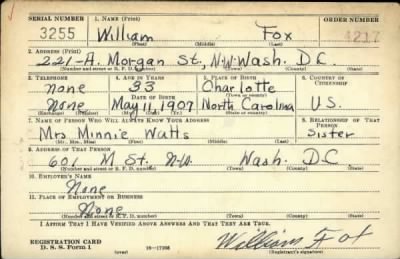 SERIAL NUMBER 1. NAME (Print) ORDER NUMBER
3255 William Fox 4217
(First) (Middle) (Last)
2. ADDRESS (Print)
221-A. Morgan St., N.W. Wash. D.C.
(Number and street or R. F. D. number) (Town) (County) (State)
3. TELEPHONE 4. AGE IN YEARS 5. PLACE OF BIRTH 6. COUNTRY OF CITIZENSHIP
None 33 Charlotte
DATE OF BIRTH (Town or county)
None May 11, 1907 North Carolina U.S.
(Mo.) (Day) (Yr.) (State or country)
7. NAME OF PERSON WHO WILL ALWAYS KNOW YOUR ADDRESS 8. RELATIONSHIP OF THAT PERSON
Mrs Minnie Watts Sister
(Mr., Mrs., Miss) (First) (Middle) (Last)
9. ADDRESS OF THAT PERSON
601 M St. N.W. Wash. D.C
(Number and street or R. F. D. number) (Town) (County) (State)
10. EMPLOYER'S NAME
None
11. PLACE OF EMPLOYMENT OR BUSINESS
None
(Number and street or R. F. D. number) (Town) (County) (State)
I AFFIRM THAT I HAVE VERIFIED ABOVE ANSWERS AND THAT THEY ARE TRUE.
William Fox
REGISTRATION CARD
D. S. S. Form 1 (over) (Registrant's signature)